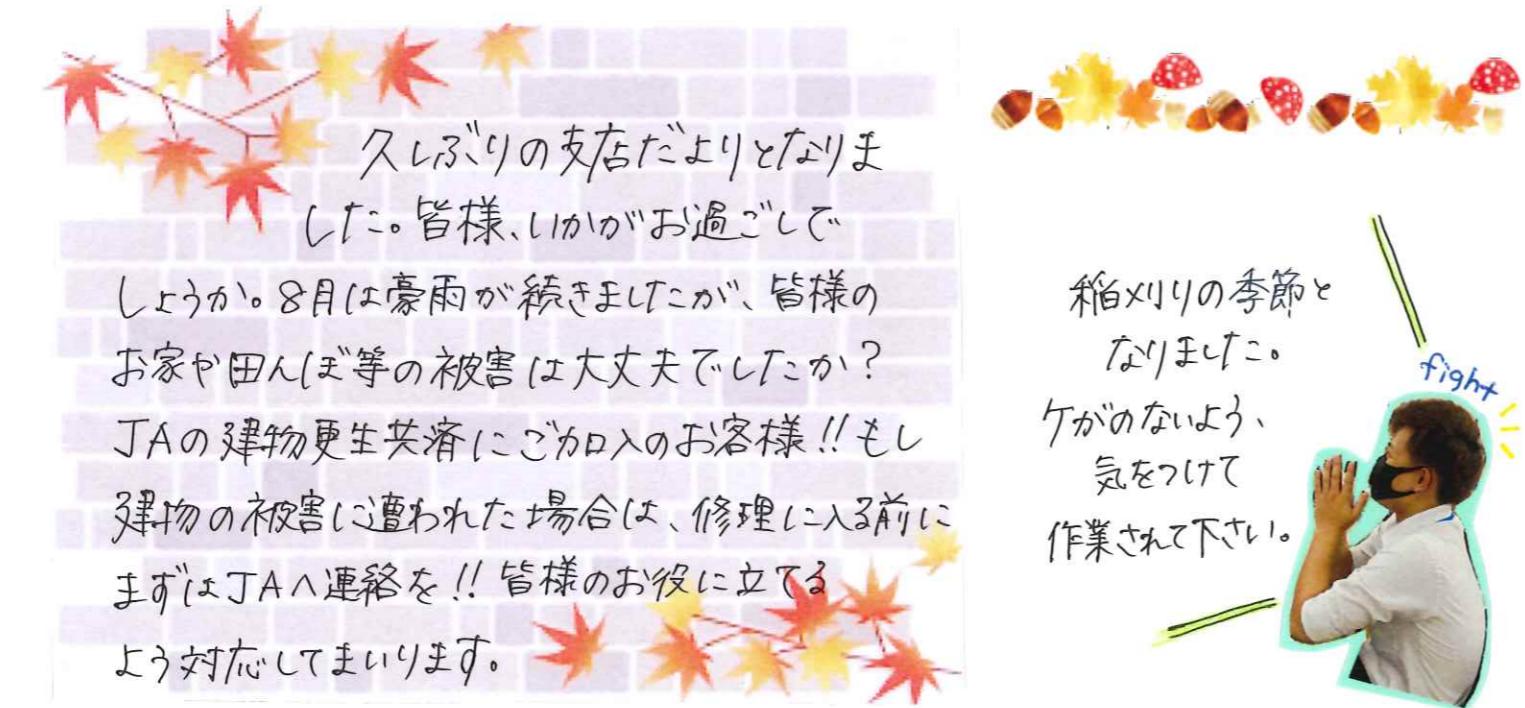 久しぶりの支店だよりとなりま
した。皆様、いかがお過ごしで
しょうか。8月は豪雨が続きましたが、皆様の
お家や田んぼ等の被害は大丈夫でしたか?
JAの建物更生共済にご加入のお客様!!もし
建物の被害に遭われた場合は、修理に入る前に
まずはJAへ連絡を!!皆様のお役に立てる
よう対応してまいります。
稲刈りの季節と
なりました。
ケがのないよう、
気をつけて
作業されて下さい。
fight